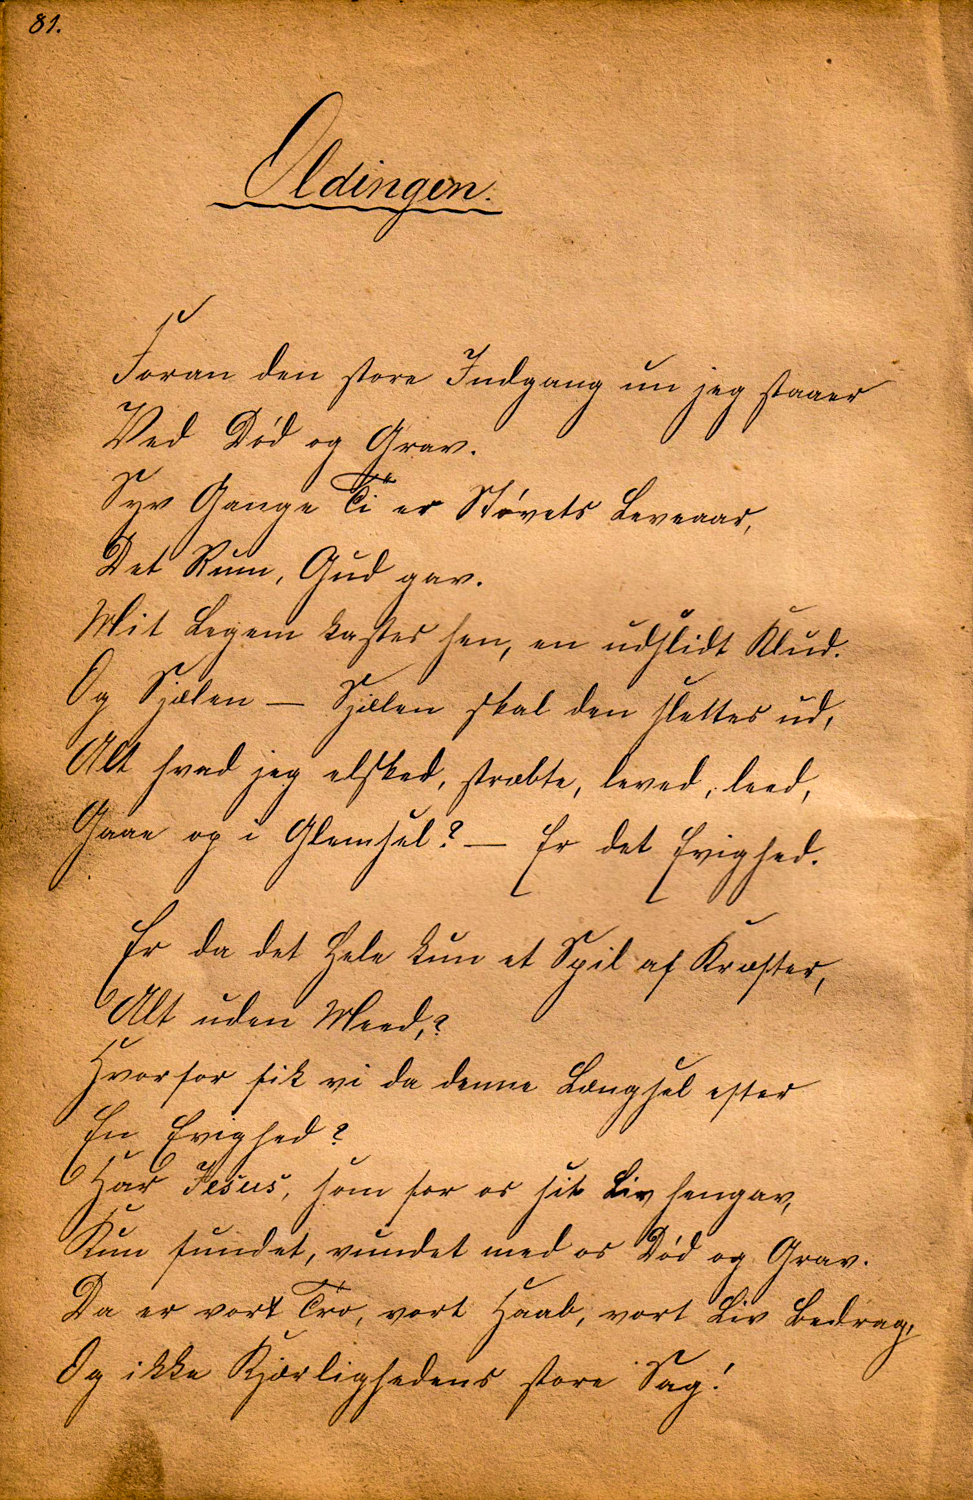 81.
Oldingen.
Foran den store Indgang nu jeg staaer
Ved Død og Grav.
Syv Gange Ti er Støvets Leveaar,
Det Rum, Gud gav.
Mit Legem kastes hen, en udslidt Klud.
Og Sjælen — Sjælen skal den slettes ud,
Alt hvad jeg elsked, stræbte, leved, leed,
Gaae op i Glemsel? — Er det Evighed.
Er da det Hele kun et Spil af Kræfter,
Alt uden Meed,?
Hvorfor fik vi da denne Længsel efter
En Evighed?
Har Jesus, som for os sit Liv hengav,
Kun fundet, vundet med os Død og Grav.
Da er vort Tro, vort Haab, vort Liv Bedrag,
Og ikke Kjærlighedens store Sag!